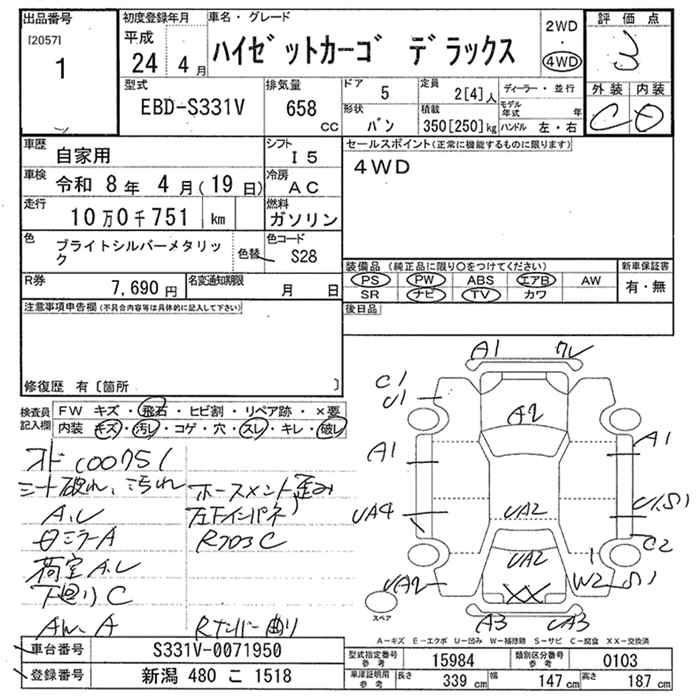 出品番号
[2057]
1
初度登録年月
平成
24 4 月
車名・グレード
ハイゼットカーゴ デラックス
2WD
・
4WD
評価点
3
外装 内装
C D
型式
EBD-S331V
排気量
658
CC
ドア 5
定員 2[4]人
ディーラー・並行
モデル年式 年
形状 バン
積載 350[250]kg
ハンドル 左・右
車歴 自家用
シフト I5
車検 令和 8年 4月(19日)
冷房 AC
走行 10万0千751 km
燃料 ガソリン
色 ブライトシルバーメタリック
色替
色コード S28
R券 7,690円
名変通知期限 月 日
注意事項申告欄(不具合内容等は具体的に記入して下さい)
修復歴 有〔箇所 〕
セールスポイント(正常に機能するものに限ります)
4WD
装備品(純正品に限り○をつけてください)
PS PW ABS エアB AW
SR ナビ TV カワ
新車保証書
有・無
後日品
検査員記入欄
FW キズ・飛石・ヒビ割・リペア跡・×要
内装 キズ・汚レ・コゲ・穴・スレ・キレ・破レ
オド 100751
シート破れ、汚れ
ホースメント歪み
A,U
左下インパネ
日ミラーA
R703C
荷室 A,U
下廻りC
AW A
Rナンバー曲り
A1 ワレ
C1
U1
A2
A1
A1
UA4
UA2
U1,S1
C2
UA2
UA2
XX
1
W2
S1
A3
UA3
スペア
A-キズ E-エクボ U-凹み W-補修跡 S-サビ C-腐食 XX-交換済
車台番号 S331V-0071950
登録番号 新潟 480 こ 1518
型式指定番号 参考 15984
類別区分番号 参考 0103
車庫証明用 参考
長さ 339 cm 幅 147 cm 高さ 187 cm